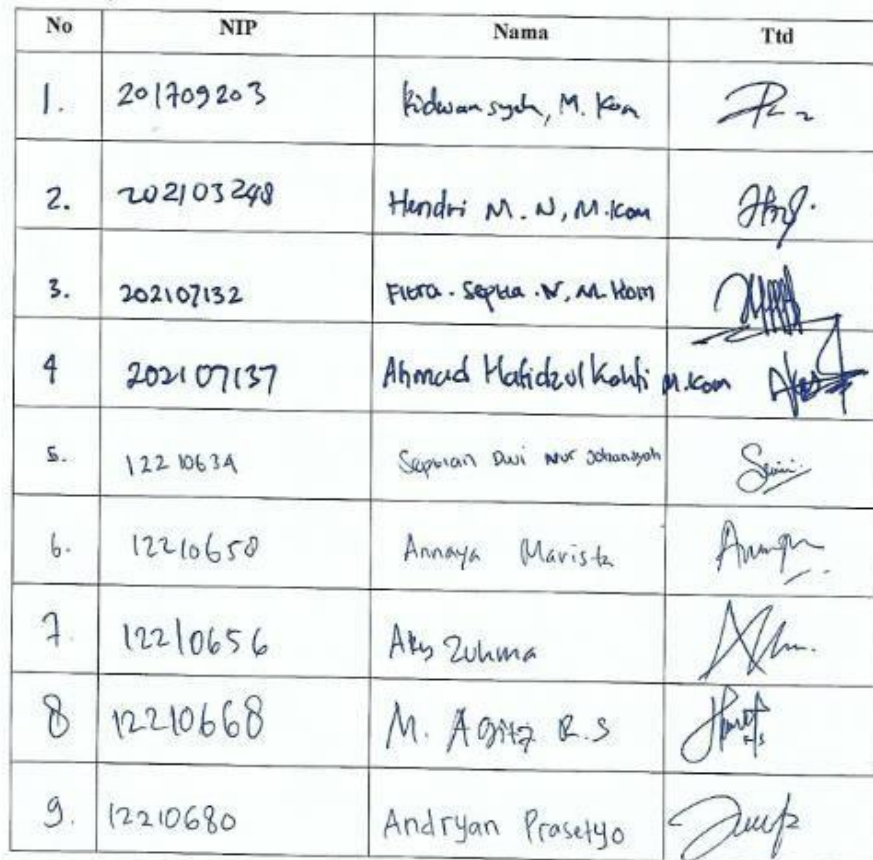 No NIP Nama Ttd
1. 201709203 Ridwansyah, M. Kom
2. 202103248 Hendri M. N, M.Kom
3. 202107132 Fitra. Septia. N, M. Kom
4 202107137 Ahmad Hafidzul Kahfi M.Kom
5. 12210634 Septian Dwi Nur Johansyah
6. 12210658 Annaya Marista
7. 12210656 Zuhma
8 12210668 M. Agitz R.S
9. 12210680 Andryan Prasetyo